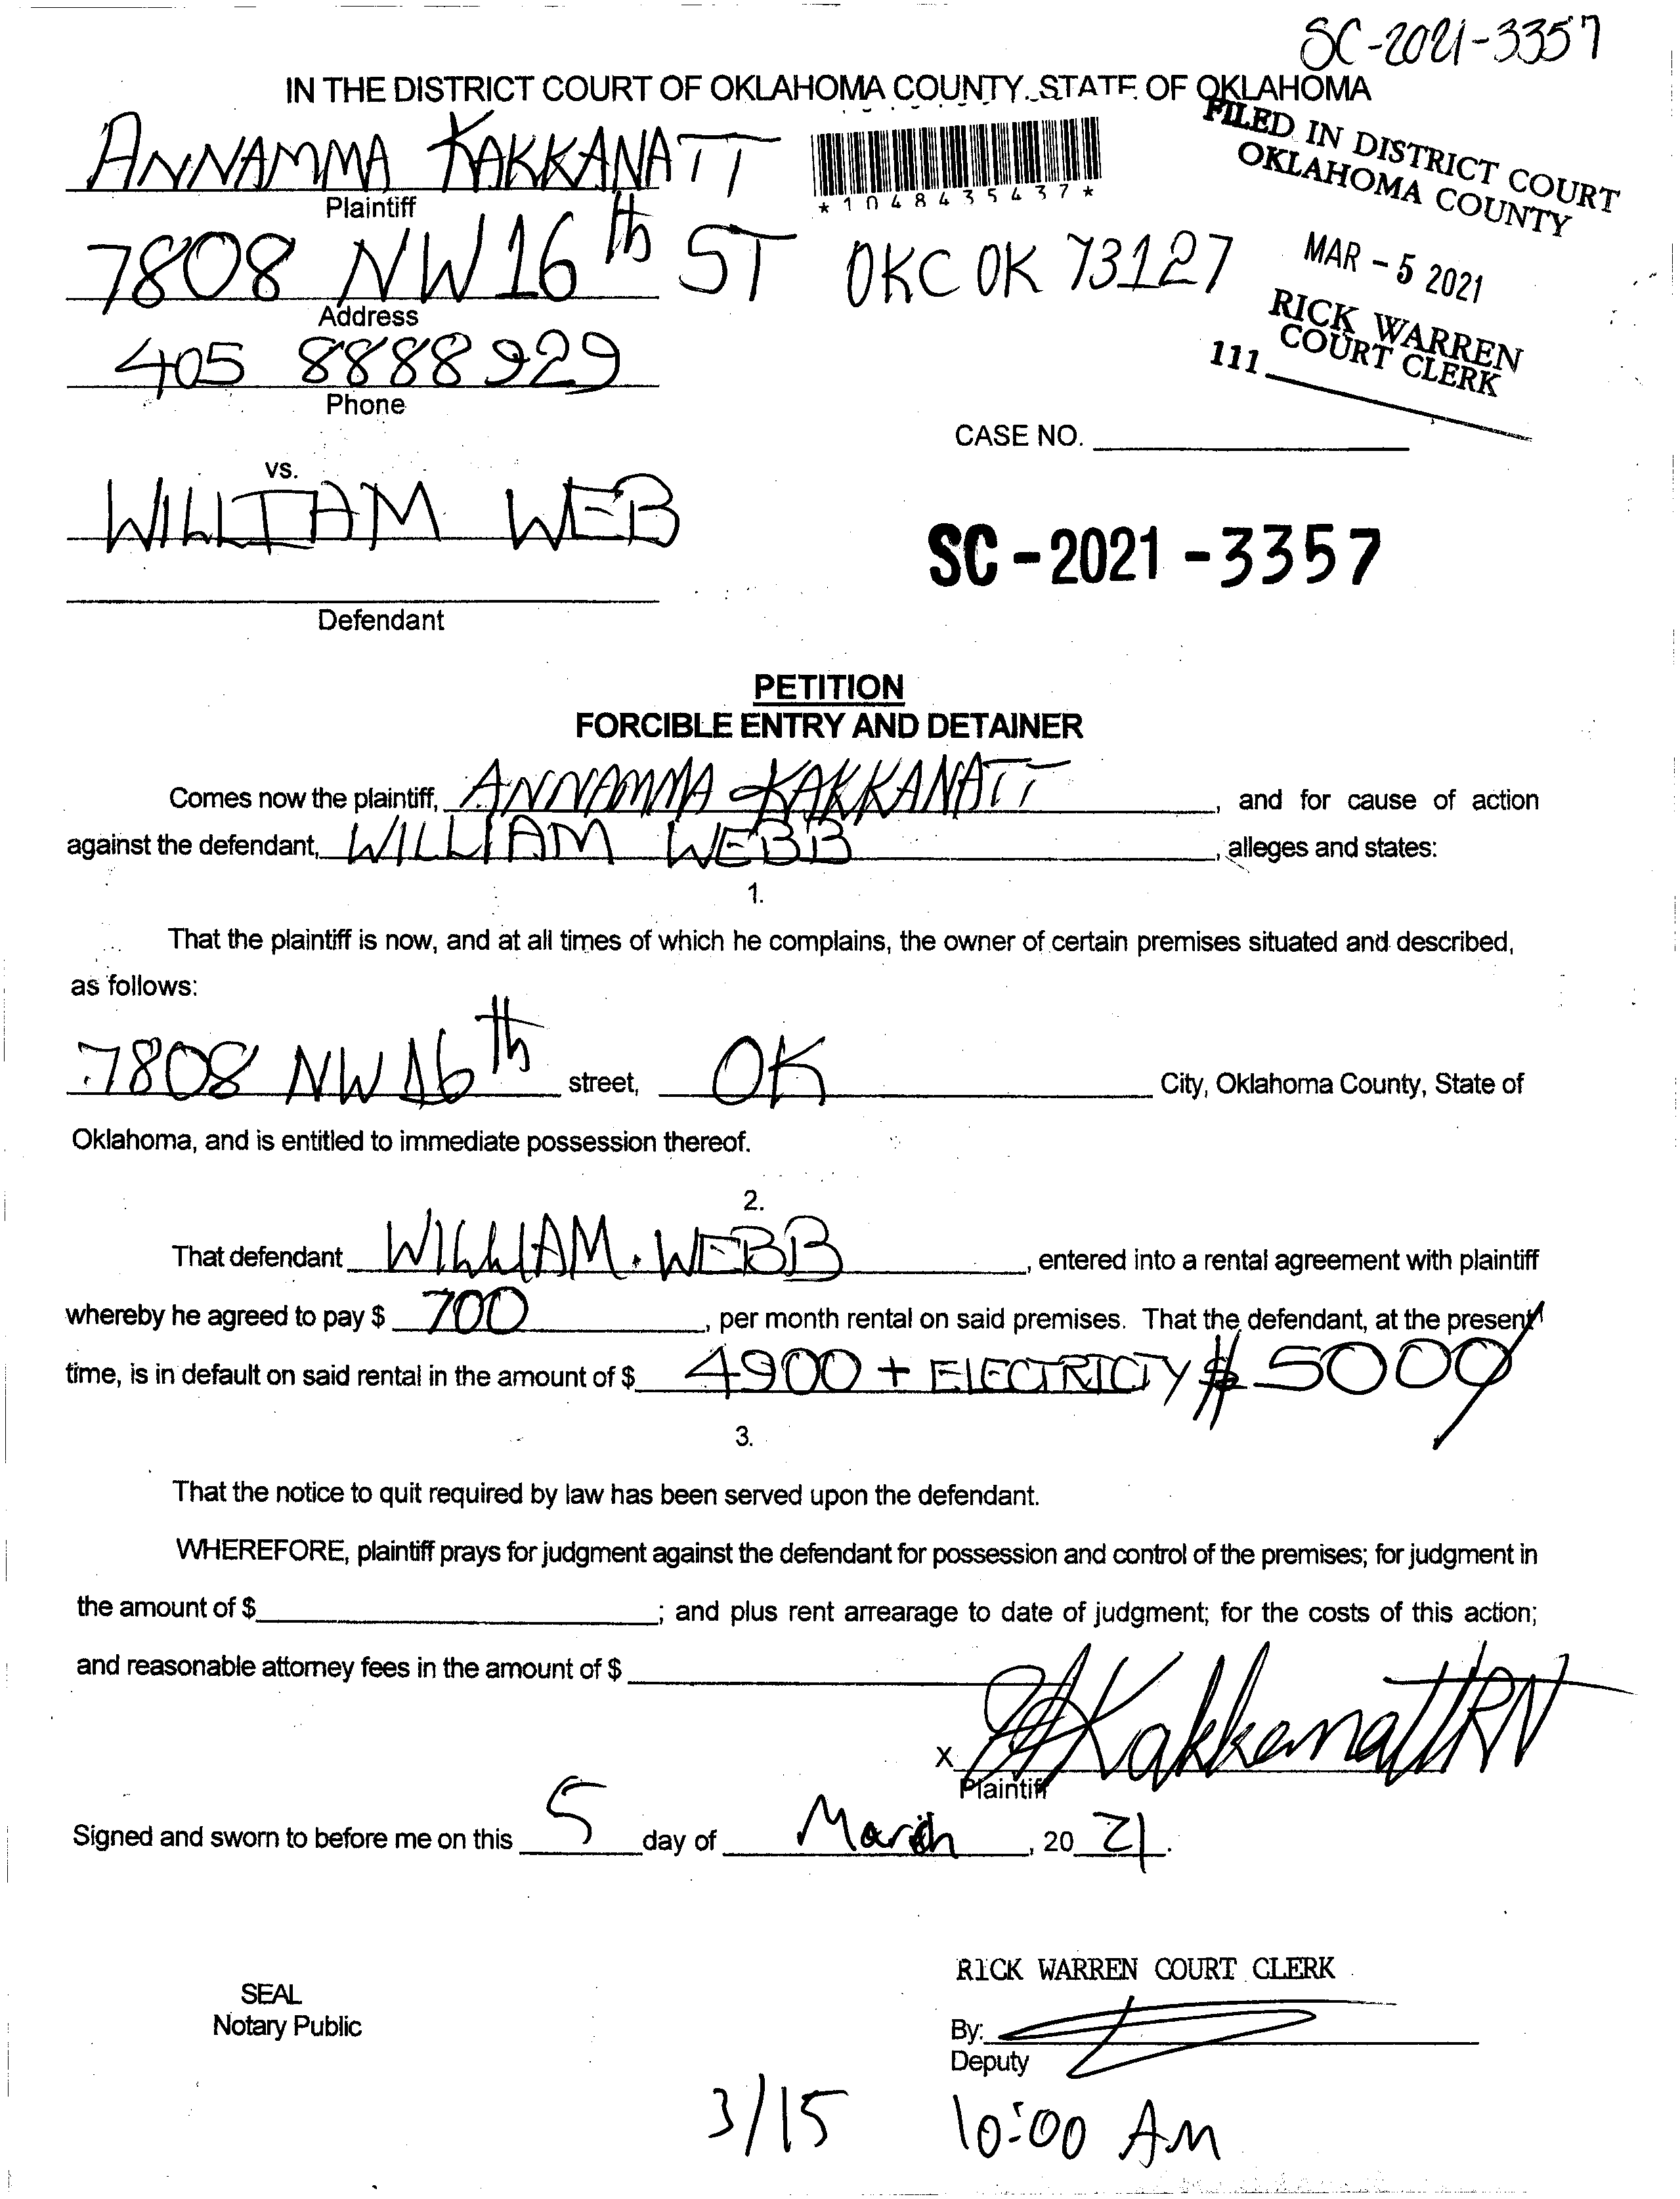 SC-2021-3357
IN THE DISTRICT COURT OF OKLAHOMA COUNTY, STATE OF OKLAHOMA
FILED IN DISTRICT COURT
OKLAHOMA COUNTY
MAR - 5 2021
RICK WARREN
COURT CLERK
111
ANNAMMA KAKKANATT
*1048435437*
Plaintiff
7808 NW 16th ST OKC OK 73127
Address
405 8888929
Phone
CASE NO.
vs.
WILLIAM WEB
SC-2021-3357
Defendant
PETITION
FORCIBLE ENTRY AND DETAINER
Comes now the plaintiff, ANNAMMA KAKKANATT, and for cause of action
against the defendant, WILLIAM WEBB, alleges and states:
1.
That the plaintiff is now, and at all times of which he complains, the owner of certain premises situated and described,
as follows:
7808 NW 16th street, OK City, Oklahoma County, State of
Oklahoma, and is entitled to immediate possession thereof.
2.
That defendant WILLIAM. WEBB, entered into a rental agreement with plaintiff
whereby he agreed to pay $ 700, per month rental on said premises. That the defendant, at the present
time, is in default on said rental in the amount of $ 4900 + ELECTRICTY $ 5000/
3.
That the notice to quit required by law has been served upon the defendant.
WHEREFORE, plaintiff prays for judgment against the defendant for possession and control of the premises; for judgment in
the amount of $; and plus rent arrearage to date of judgment; for the costs of this action;
and reasonable attorney fees in the amount of $
X Kakkanatt RN
Plaintiff
Signed and sworn to before me on this 5 day of March, 20 21.
RICK WARREN COURT CLERK
SEAL
Notary Public
By:
Deputy
3/15 10:00 AM